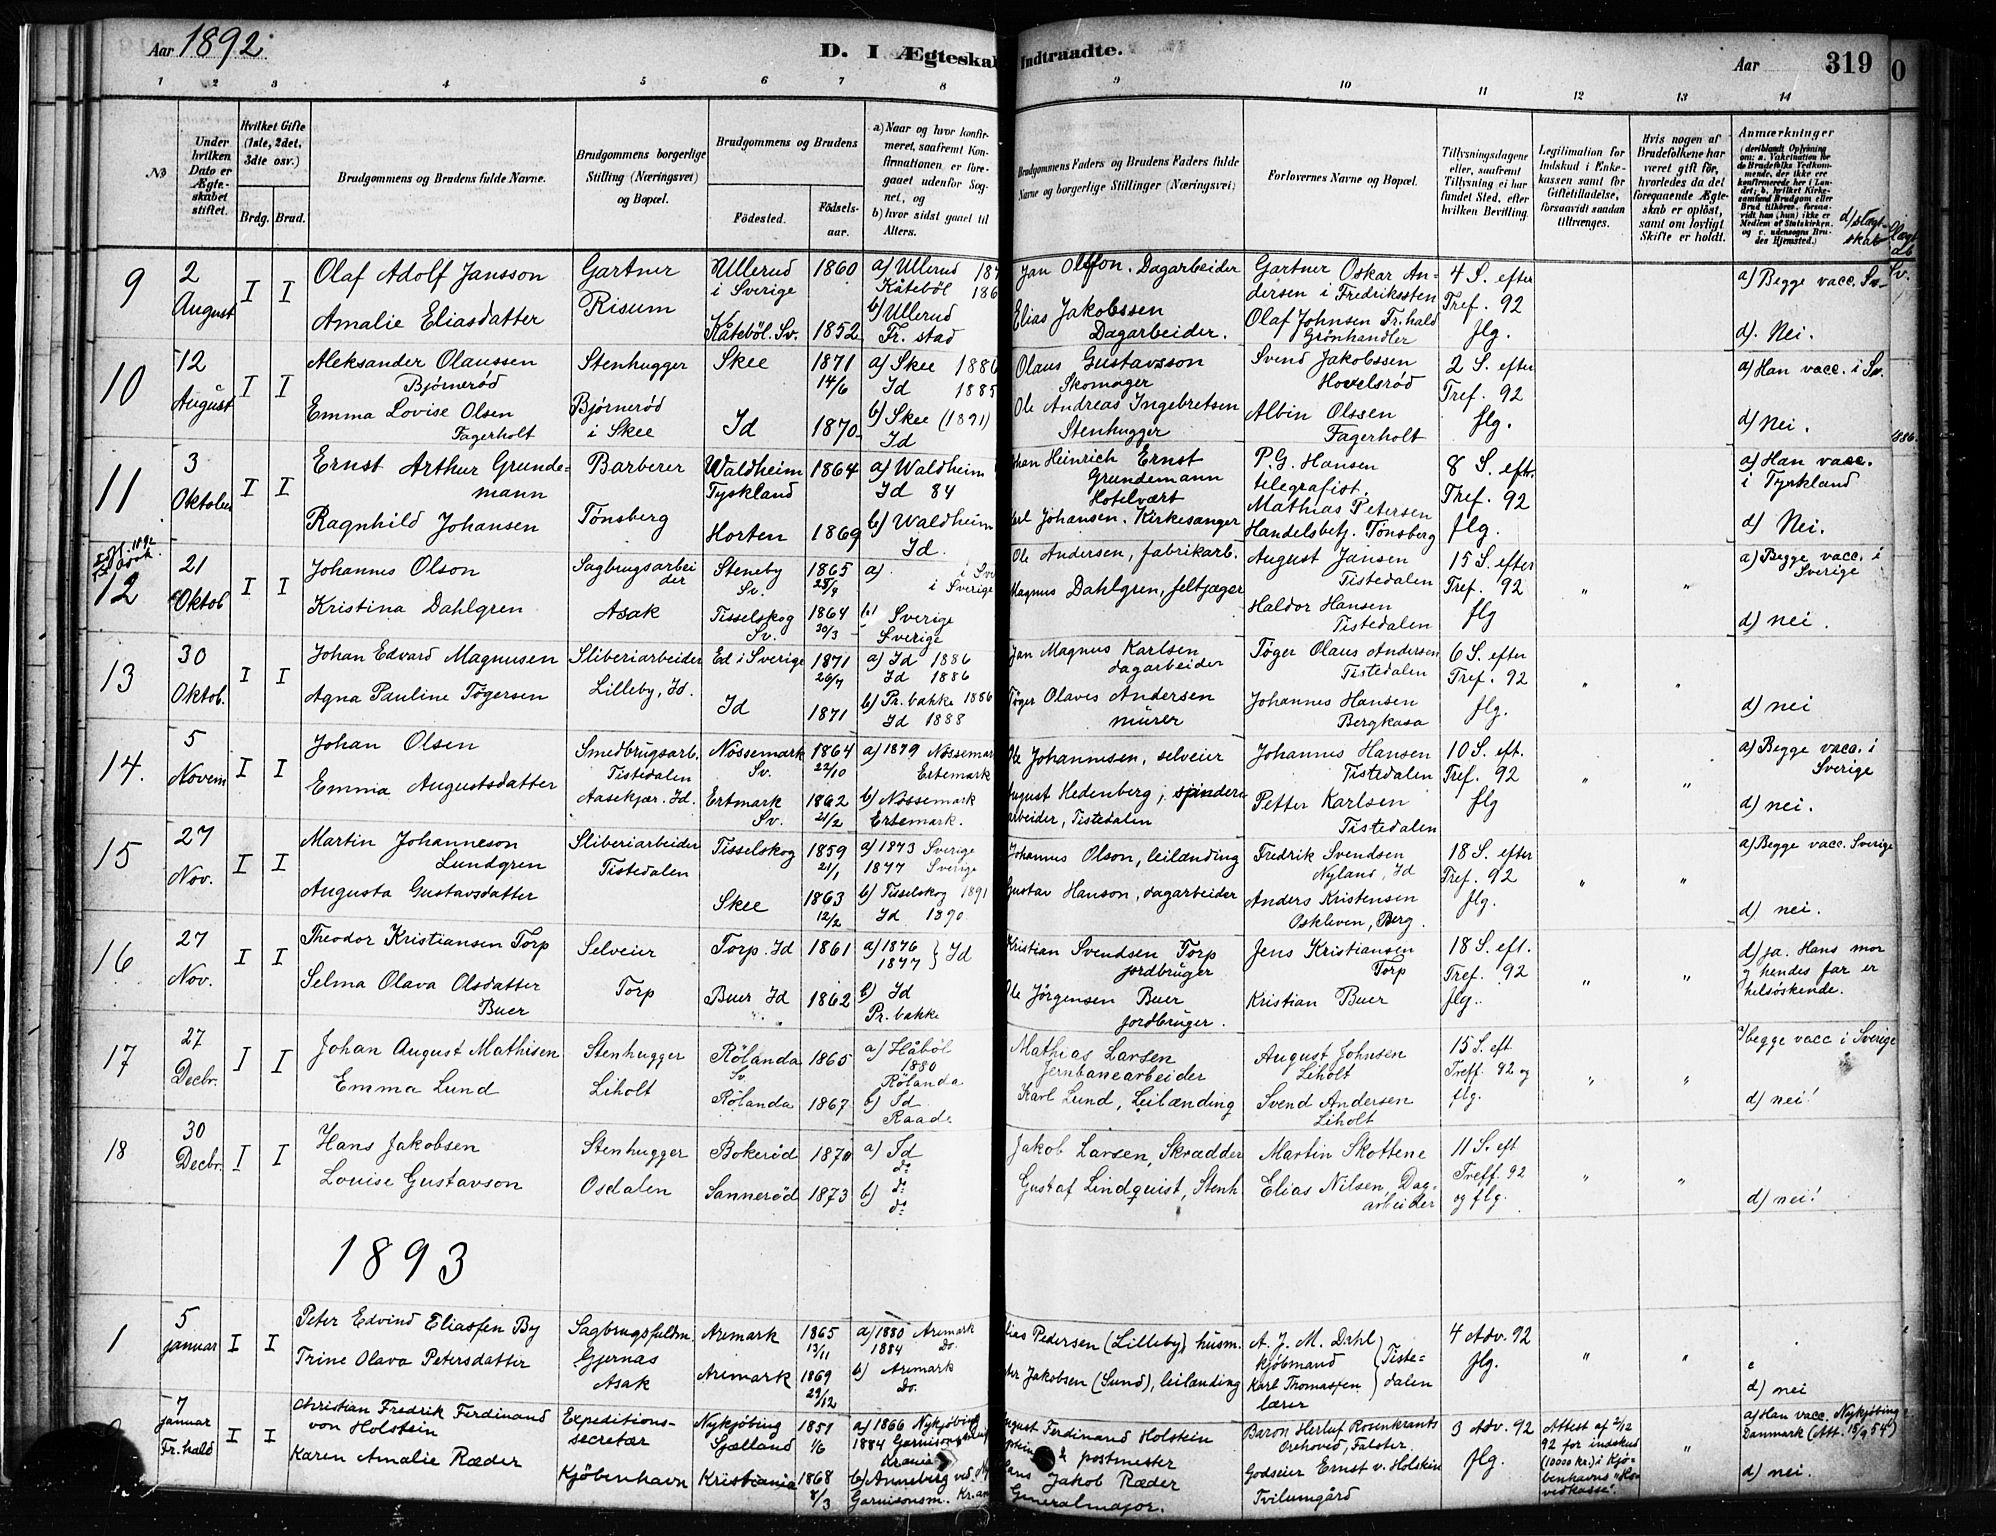 Aar 1892.
D. I Ægteskab Indtraadte.
Aar
319
1 2 3 4 5 6 7 8 9 10 11 12 13 14
No
Under hvilken Dato er Ægte-skabet stiftet.
Hvilket Gifte (1ste, 2det, 3die osv.)
Brdg. Brud.
Brudgommens og Brudens fulde Navne.
Brudgommens borgerlige Stilling (Næringsvei) og Bopæl.
Brudgommens og Brudens
Fødested.
Fødsels-aar.
a) Naar og hvor konfir-meret, saafremt Kon-firmationen er fore-gaaet udenfor Sog-net, og
b) hvor sidst gaaet til Alters.
Brudgommens Faders og Brudens Faders fulde Navne og borgerlige Stillinger (Næringsvei)
Forlovernes Navne og Bopæl.
Tillysningsdagene eller, saafremt Tillysning ei har fundet Sted, efter hvilken Bevilling.
Legitimation for Indskud i Enke-kassen samt for Giftetilladelse, forsaavidt saadan tiltrænges.
Hvis nogen af Brudefolkene har været gift før, hvorledes da det foregaaende Ægte-skab er opløst, samt om lovligt Skifte er holdt.
Anmærkninger
d) slægt-skab
9
2 August
I I
Olaf Adolf Jansson
Amalie Eliasdatter
Gartner
Risum
Ullerud i Sverige 1860
Kåteböl. Sv. 1852
a) Ullerud
Kåteböl
b) Ullerud
Fr. stad
Jan Olsson. Dagarbeider
Elias Jakobssen
Dagarbeider.
Gartner Oskar An-
dersen i Fredrikssten
Olaf Johnsen Fr.hald
Grønhandler
4 S. efter
Tref. 92
flg.
a) Begge vacc. Sv.
d). Nei.
10
12 August
I I
Aleksander Olaussen
Bjørnerød
Emma Lovise Olsen
Fagerholt
Stenhugger
Bjørnerød
i Skee
Skee 1871
14/6
Id 1870
a) Skee 1886
Id 1885
b) Skee (1891)
Id
Olaus Gustavsson
Skomager
Ole Andreas Ingebretsen
Stenhugger
Svend Jakobssen
Hovelsrød
Albin Olssen
Fagerholt
2 S. efter
Tref. 92
flg.
a) Han vacc. i Sv.
d) Nei.
11
3 Oktober
I I
Ernst Arthur Grunde-
mann
Ragnhild Johansen
Barberer
Tønsberg
Waldheim 1864
Tyskland
Horten 1869
a) Waldheim
Id 84
b) Waldheim
Id.
Johan Heinrich Ernst
Grundemann
Hotelvært
Johansen. Kirkesanger
P. G. Hansen
telegrafist.
Mathias Petersen
Handelsbetj. Tønsberg
8 S. eft.
Tref. 92
flg.
a) Han vacc.
i Tyskland
d) Nei.
12
21 Oktob
I I
Johannes Olson
Kristina Dahlgren
Sagbrugsarbei
der
Asak
Steneby 1865
Sv.
Tisselskog 1864
Sv. 30/3
a) i Sverige
b) Sverige
Sverige
Ole Andersen, fabrikarb.
Magnus Dahlgren, feltjæger
August Jansen
Tistedalen
Haldor Hansen
Tistedalen
15 S. efter
Tref. 92
flg
" "
a) Begge vacc. i
Sverige
d) nei.
13
30 Oktob.
I I
Johan Edvard Magnusen
Agna Pauline Tøgersen
Sliberiarbeider
Lilleby, Id.
Ed i Sverige 1871
26/7
Id 1871
a) Id 1886
Id 1886
b) Pr. bakke 1886
Id 1888
Jan Magnus Karlsen
dagarbeider
Tøger Olaves Andersen
murer
Tøger Olaus Andersen
Tistedalen
Johannes Hansen
Bergkasa
6 S. efter
Tref. 92
flg.
" "
d) nei
14.
5 Novem
I I
Johan Olsen
Emma Augustsdatter
Smedbrugsarb.
Tistedalen
Aasekjær. Id.
Nössemark 1864
Sv. 22/10
Ertmark 1862
Sv. 21/2
a) 1879 Nössemark
Ertemark
b) Nössemark
Ertemark.
Ole Johannesen, selveier
August Hedenberg, spinderi
arbeider, Tistedalen
Johannes Hansen
Tistedalen
Petter Karlsen
Tistedalen
10 S. eft.
Tref. 92
flg
" "
a) Begge vacc. i
Sverige
d) nei.
15
27 Nov.
I I
Martin Johanneson
Lundgren
Augusta Gustavsdatter
Sliberiarbeider
Tistedalen
Tisselskog 1859
21/1
Skee 1863
12/2
a) 1873 Sverige
1877 Sverige
b) Tisselskog 1891
Id 1890.
Johannes Olson, leilænding
Gustav Hanson, dagarbeider
Fredrik Svendsen
Nyland, Id
Anders Kristensen
Oskleven, Berg.
18 S. efter
Tref. 92
flg.
" "
a) Begge vacc. Sverige
d) nei.
16
27 Nov.
I I
Theodor Kristiansen Torp
Selma Olava Olsdatter
Buer
Selveier
Torp
Torp. Id 1861
Buer Id 1862
a) 1876
1877 } Id
b) Id
Pr. bakke
Kristian Svendsen Torp
jordbruger
Ole Jörgensen Buer
jordbruger.
Jens Kristiansen
Torp
Kristian Buer
18 S. eft.
Tref. 92
flg.
" "
d) ja. Hans mor
og hendes far er
helsöskende.
17
27 Decbr.
I I
Johan August Mathisen
Emma Lund
Stenhugger
Liholt
Rölanda 1865
Sv
Rölanda 1867
a) Håböl
1880
Rölanda
b) Id
Raade
Mathias Larsen
Jernbanearbeider
Karl Lund, Leilænding
August Johnsen
Liholt
Svend Andersen
Liholt
15 S. eft
Treff. 92 og
flg.
" "
a) begge vacc i Sverige
d) nei!
18
30 Decbr.
I I
Hans Jakobsen
Louise Gustavson
Stenhugger
Osdalen
Bokerød 1870
Sannerød 1873
a) Id
do
b) do
do
Jakob Larsen, Skrædder
Gustaf Lindquist, Stenh
Martin Skottene
Elias Nilsen, Dag-
arbeider
11 S. eft
Treff. 92
og flg.
" "
d) nei!
1893
1
5 januar
I I
Peter Edvind Eliassen By
Trine Olava Petersdatter
Sagbrugsfuldm.
Gjernas
Asak
Aremark 1865
13/11
Aremark 1869
29/12
a) 1880 Aremark
1884 Do.
b) Aremark
Do.
Elias Pedersen (Lilleby) husm.
Jakobsen (Sund), leilænding
A. J. M. Dahl
kjöbmand
Karl Thomassen
lærer
} Tiste=
dalen
4 Adv. 92
flg.
" "
d) nei
7 januar
Fr. hald
I I
Christian Fredrik Ferdinand
von Holstein
Karen Amalie Ræder
Expeditions-
secretær
Kjöbenhavn
Nykjöbing 1851
Sjælland 1/6
Kristiania 1868
8/3
a) 1866 Nykjöbing
1884 Garnisons
Krania
b) Anneberg ved
Garnisonsm.
August Ferdinand Holstein
postmester
Hans Jakob Ræder
Generalmajor.
Baron Herluf Rosenkrants
Orehoved, Falster.
Godseier Ernst v. Holstein
Tvilumgård
3 Adv. 92
flg.
Attest af 2/12
92 for indskud
(10000 kr.) i Kjö-
benhavns "Ho-
vedkasse".
"
a) Han vacc. Nykjöbing
Danmark (Att. 15/9 54)
d) nei.